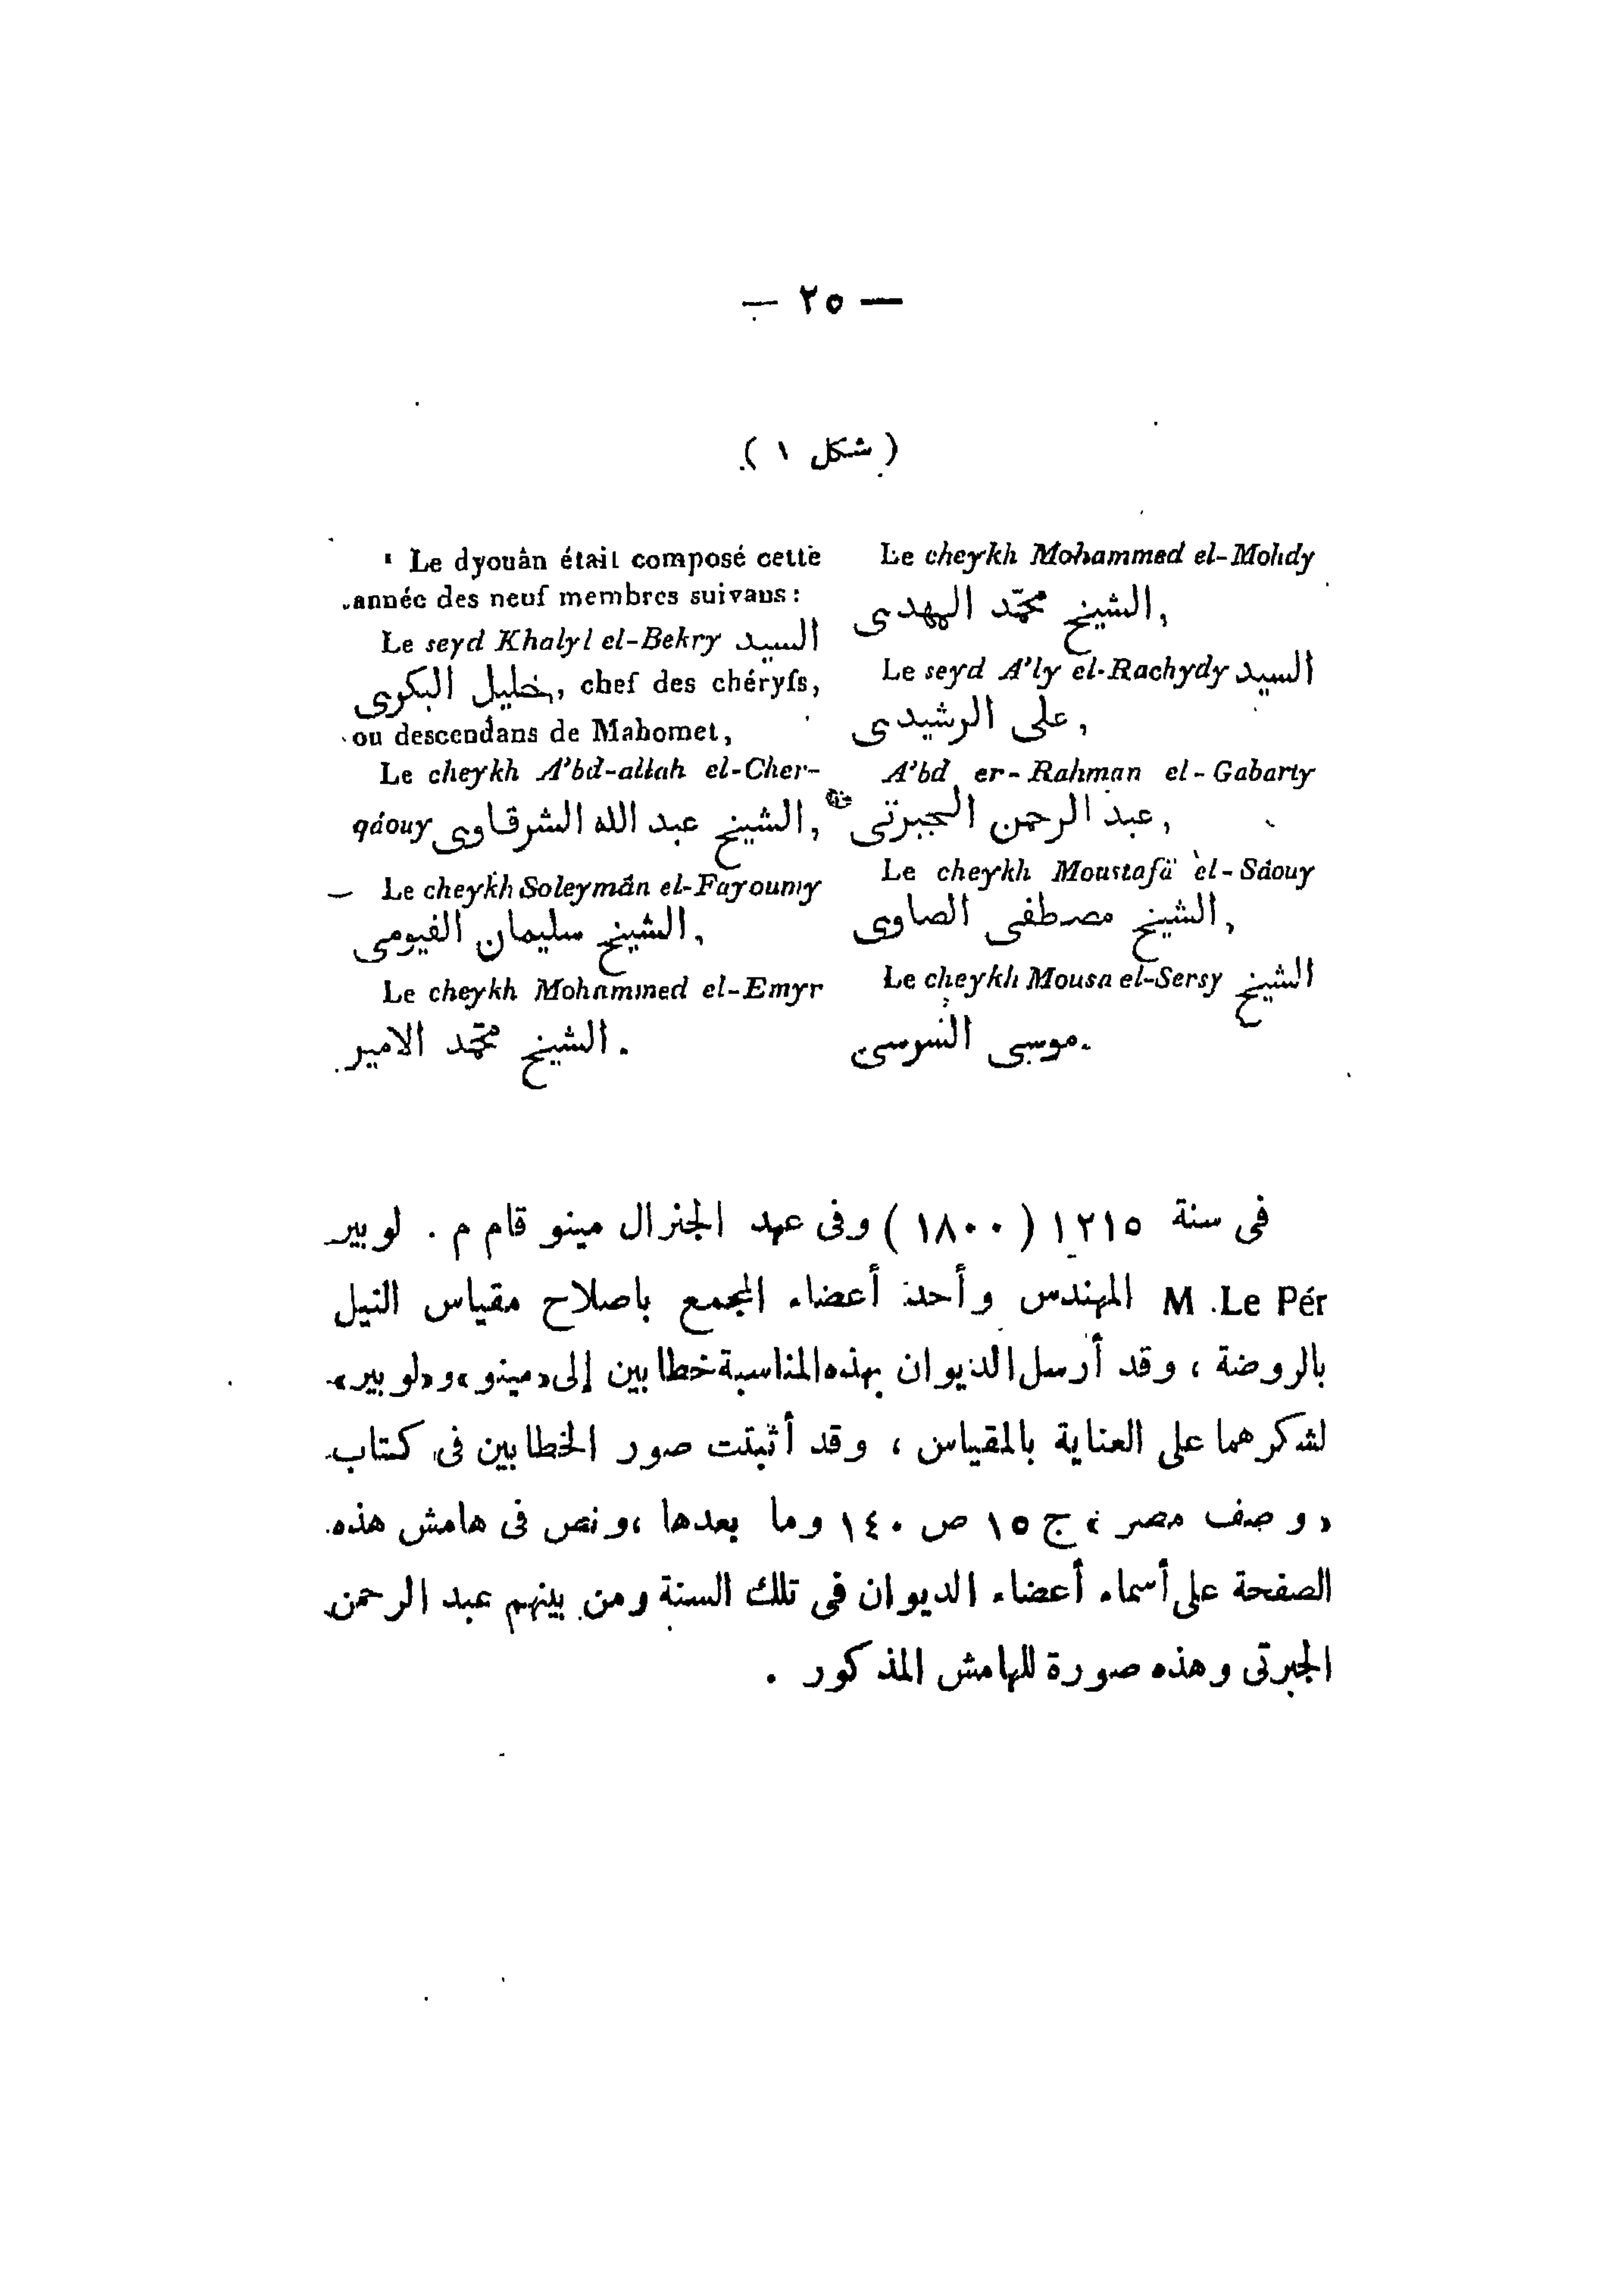 — ٢٥ —
( شكل ١ )
¹ Le dyouân était composé cette
année des neuf membres suivans :
Le seyd Khalyl el-Bekry السيد
خليل البكرى, chef des chéryfs,
ou descendans de Mahomet,
Le cheykh A'bd-allah el-Cher-
qâouy الشيخ عبد الله الشرقاوى,
Le cheykh Soleymân el-Fayoumy
الشيخ سليمان الفيومى,
Le cheykh Mohammed el-Emyr
الشيخ محمّد الامير.
Le cheykh Mohammed el-Mohdy
الشيخ محمّد المهدى,
Le seyd A'ly el-Rachydy السيد
على الرشيدى,
A'bd er-Rahman el-Gabarty
عبد الرحمن الجبرتى,
Le cheykh Moustafä el-Sâouy
الشيخ مصطفى الصاوى,
Le cheykh Mousa el-Sersy الشيخ
موسى السرسى.
فى سنة ١٢١٥ ( ١٨٠٠ ) وفى عهد الجنرال مينو قام م . لوبير
M .Le Pér المهندس وأحد أعضاء المجمع باصلاح مقياس النيل
بالروضة ، وقد أرسل الديوان بهذه المناسبة خطابين إلى «مينو» و«لوبير»
لشكرهما على العناية بالمقياس ، وقد أثبتت صور الخطابين فى كتاب
« وصف مصر » ج ١٥ ص ١٤٠ وما بعدها ، ونص فى هامش هذه
الصفحة على أسماء أعضاء الديوان فى تلك السنة ومن بينهم عبد الرحمن
الجبرتى وهذه صورة للهامش المذكور .